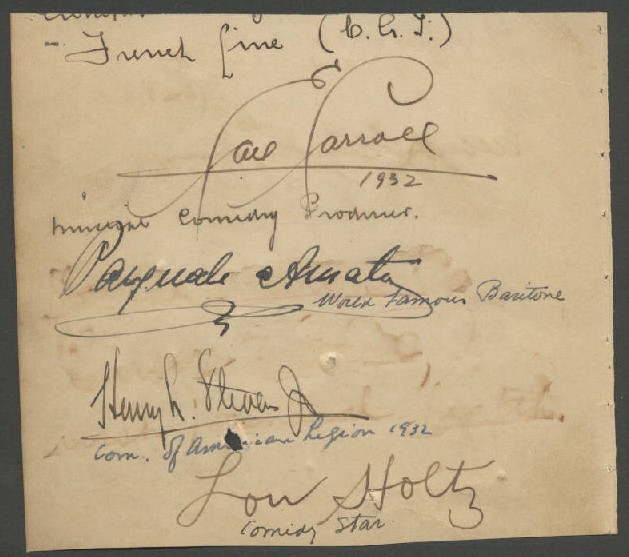 - French Line (C. G. T.)
Earl Carroll
1932
Musical Comedy Producer.
Pasquale Amato
World Famous Baritone
Henry L. Stevens Jr
Com. of American Legion 1932
Lou Holtz
Comidy Star